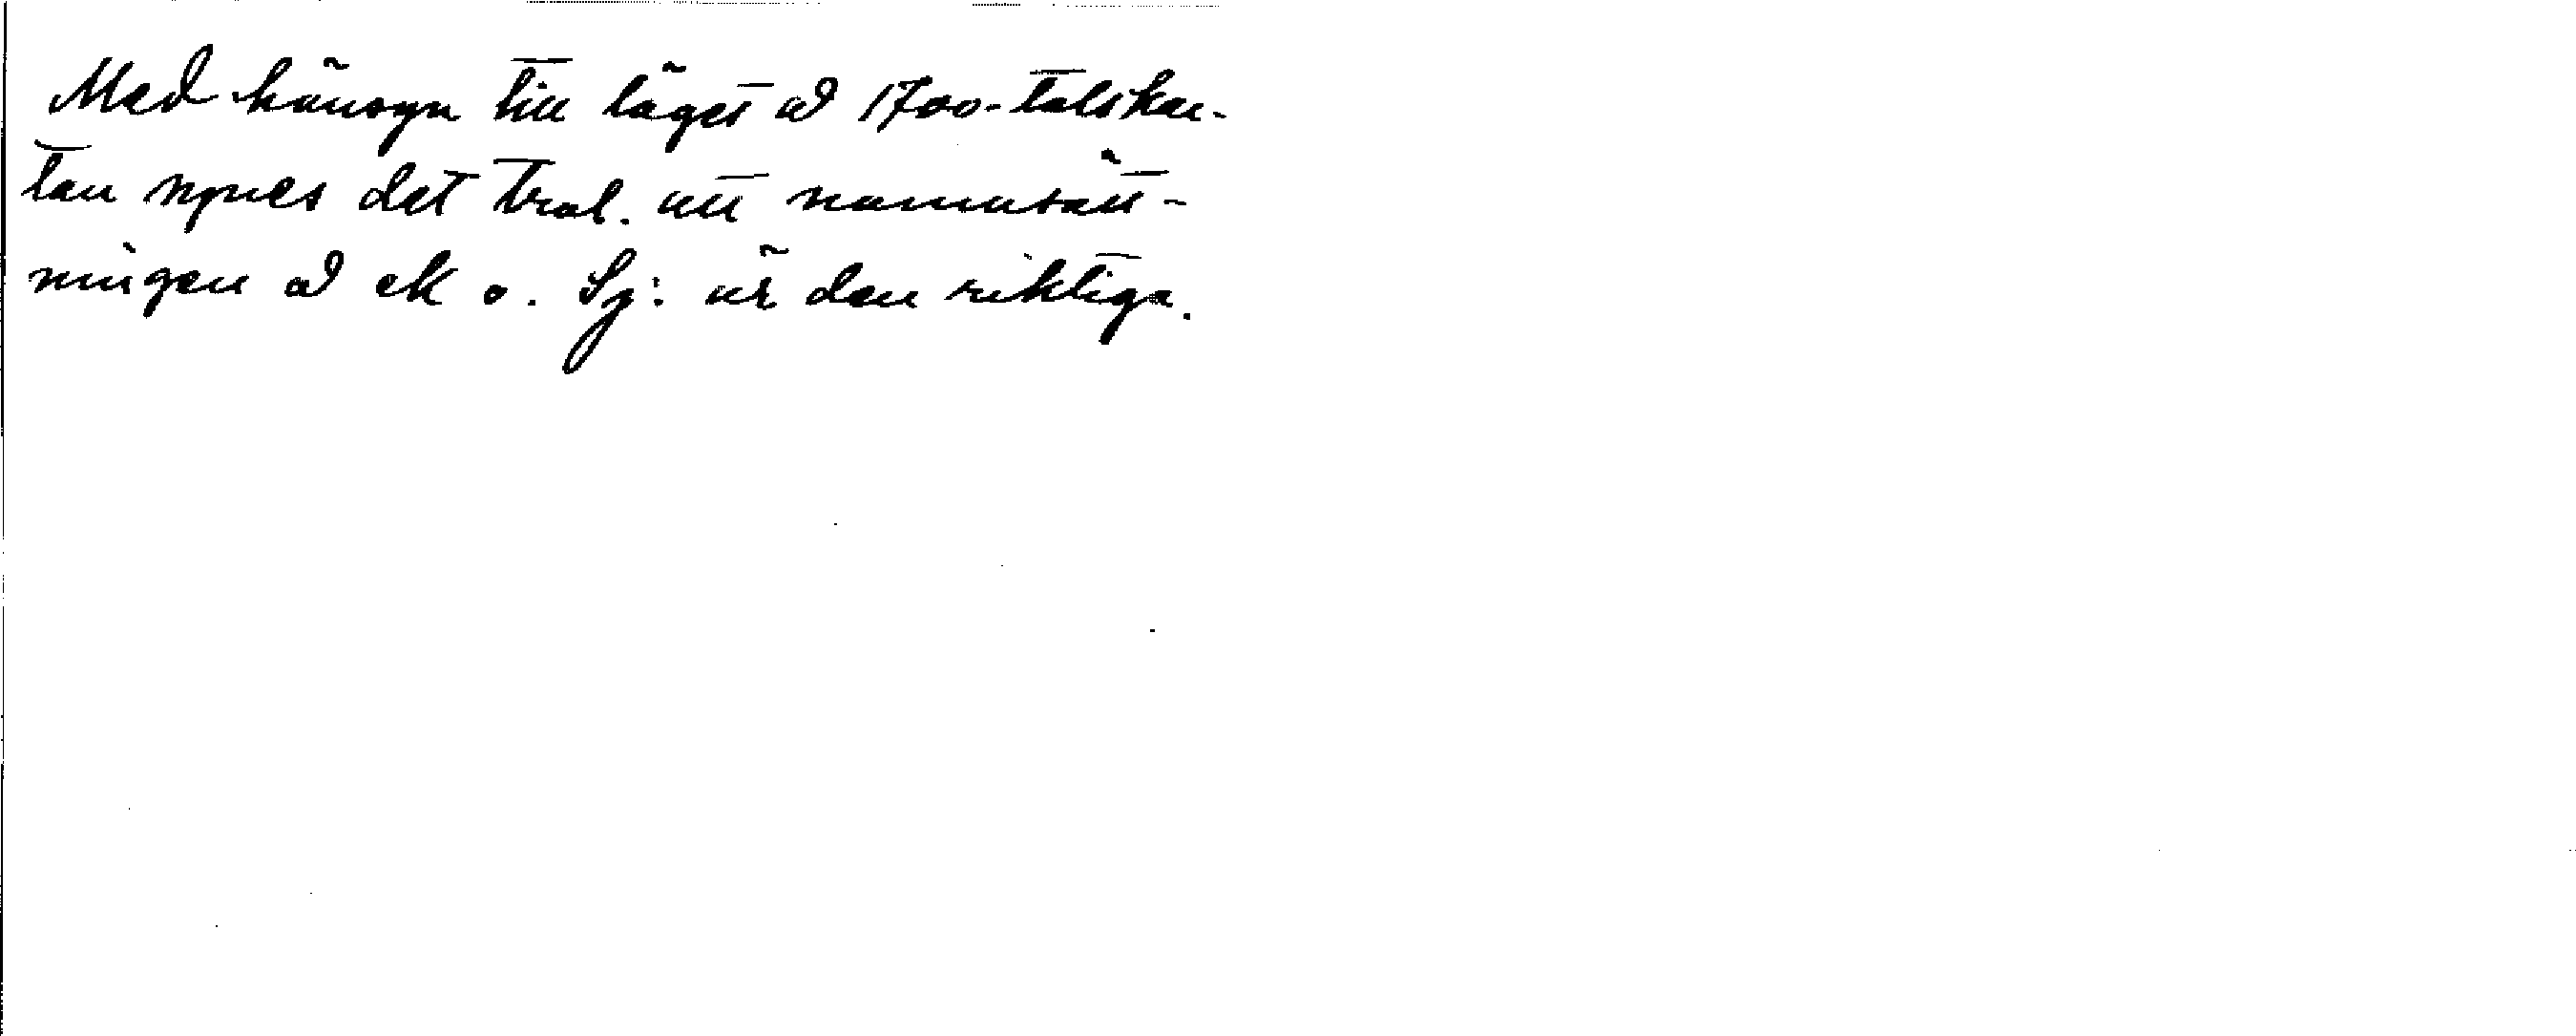 Med hänsyn till läget å 1700-talskar-
tan synes det trol. att namnsätt-
ningen å ek o. Sj: är den riktiga.